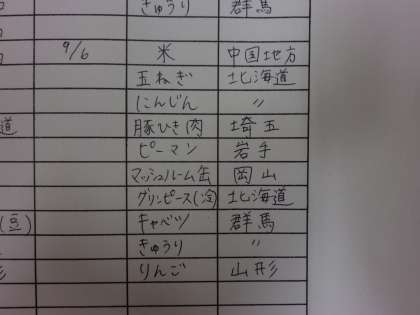 きゅうり 群馬
9/6 米 中国地方
玉ねぎ 北海道
にんじん 〃
道 豚ひき肉 埼玉
ピーマン 岩手
マッシュルーム缶 岡山
グリンピース(冷) 北海道
(豆) キャベツ 群馬
きゅうり 〃
りんご 山形